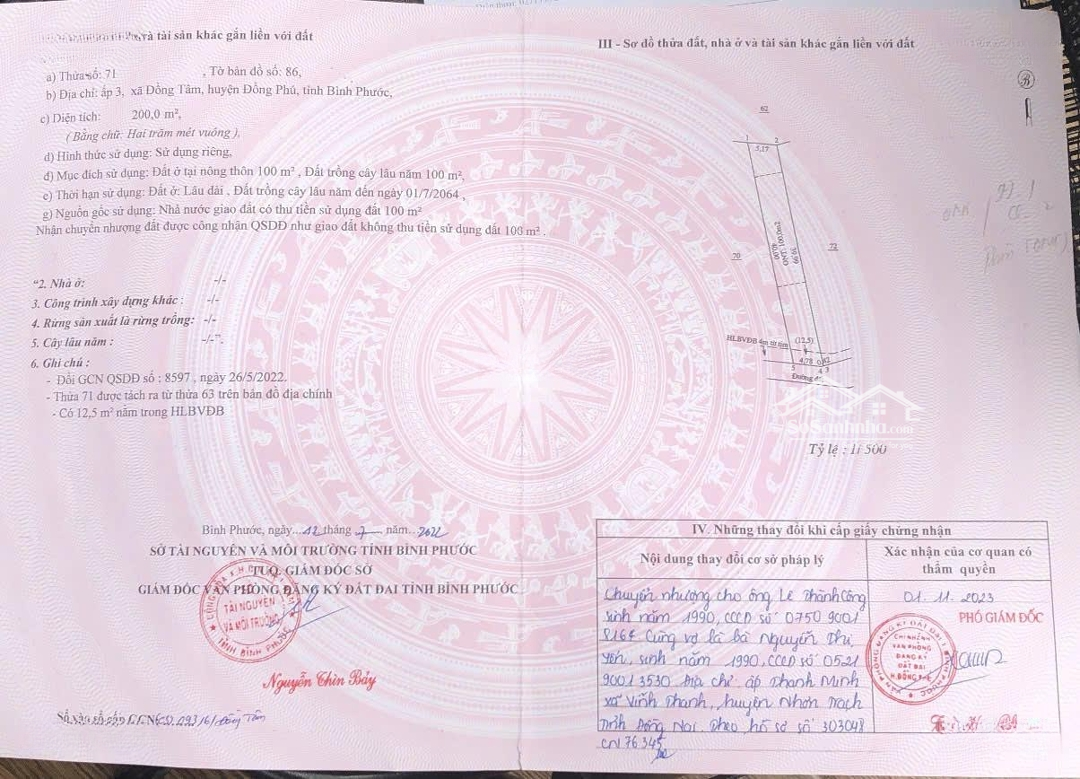 và tài sản khác gắn liền với đất
a) Thửa số: 71 , Tờ bản đồ số: 86,
b) Địa chỉ: ấp 3, xã Đồng Tâm, huyện Đồng Phú, tỉnh Bình Phước,
c) Diện tích: 200,0 m²,
( Bằng chữ: Hai trăm mét vuông ),
d) Hình thức sử dụng: Sử dụng riêng,
đ) Mục đích sử dụng: Đất ở tại nông thôn 100 m² , Đất trồng cây lâu năm 100 m²,
e) Thời hạn sử dụng: Đất ở: Lâu dài , Đất trồng cây lâu năm đến ngày 01/7/2064 ,
g) Nguồn gốc sử dụng: Nhà nước giao đất có thu tiền sử dụng đất 100 m²
Nhận chuyển nhượng đất được công nhận QSDĐ như giao đất không thu tiền sử dụng đất 100 m² .
“2. Nhà ở: -/-
3. Công trình xây dựng khác : -/-
4. Rừng sản xuất là rừng trồng: -/-
5. Cây lâu năm : -/-”.
6. Ghi chú :
- Đổi GCN QSDĐ số : 8597 , ngày 26/5/2022.
- Thửa 71 được tách ra từ thửa 63 trên bản đồ địa chính
- Có 12,5 m² nằm trong HLBVĐB
Bình Phước, ngày 12 tháng 7 năm 2022
SỞ TÀI NGUYÊN VÀ MÔI TRƯỜNG TỈNH BÌNH PHƯỚC
TUQ. GIÁM ĐỐC SỞ
GIÁM ĐỐC VĂN PHÒNG ĐĂNG KÝ ĐẤT ĐAI TỈNH BÌNH PHƯỚC
TÀI NGUYÊN
VÀ MÔI TRƯỜNG
TỈNH BÌNH PHƯỚC
Nguyễn Chín Bảy
Số vào sổ cấp GCN: Đồng Tâm
III - Sơ đồ thửa đất, nhà ở và tài sản khác gắn liền với đất
62
1 2
5,17
70
40,00
(ONT: 100,0m2)
39,99
72
HLBVĐB 4m từ tim
(12,5)
4,78 0,42
5 4 3
Đường đ
SoSanhnha.com
Tỷ lệ : 1/ 500
IV. Những thay đổi khi cấp giấy chứng nhận
Nội dung thay đổi cơ sở pháp lý
Xác nhận của cơ quan có thẩm quyền
Chuyển nhượng cho ông Lê Thành Công
sinh năm 1990, CCCD số 0750 9001
8164 Cùng vợ là bà Nguyễn Thị
Yến, sinh năm 1990, CCCD số 0521
9001 3530 Địa chỉ ấp Thanh Minh
xã Vĩnh Thanh, huyện Nhơn Trạch
tỉnh Đồng Nai Theo hồ sơ số 303048
CN 76345
01.11.2023
PHÓ GIÁM ĐỐC
CHI NHÁNH
VĂN PHÒNG
ĐĂNG KÝ
ĐẤT ĐAI
H.ĐỒNG PHÚ